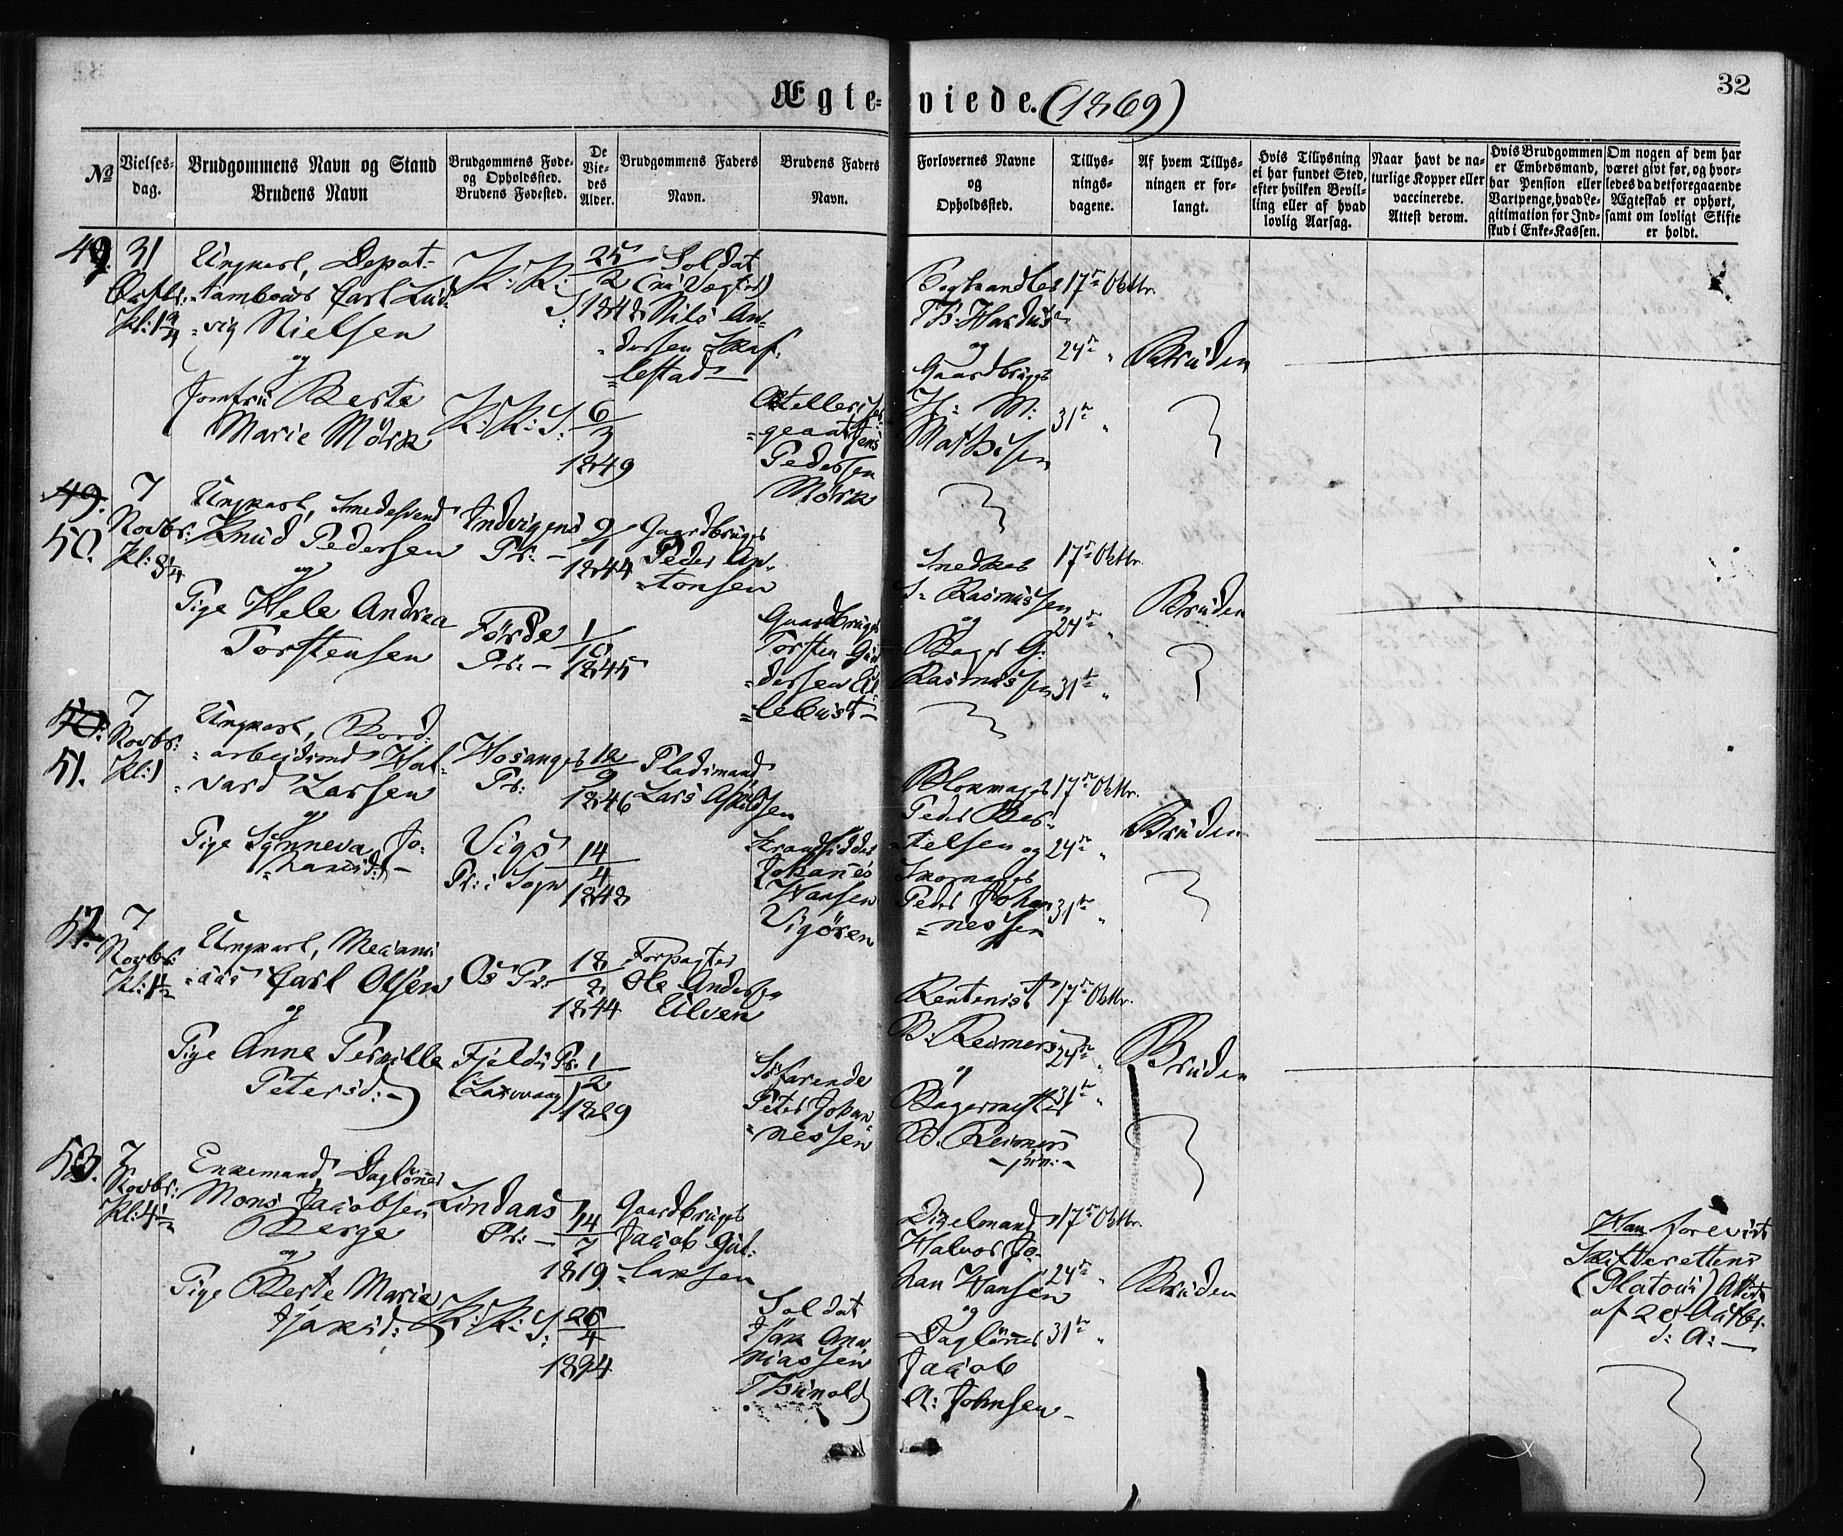 Ægte-viede. (1869)
32
No
Vielses-
dag.
Brudgommens Navn og Stand
Brudens Navn
Brudgommens Føde-
og Opholdssted.
Brudens Fødested.
De
Vie-
des
Alder.
Brudgommens Faders
Navn.
Brudens Faders
Navn.
Forlovernes Navne
og
Opholdssted.
Tillys-
nings-
dagene.
Af hvem Tillys-
ningen er for-
langt.
Hvis Tillysning
ei har fundet Sted,
efter hvilken Bevil-
ling eller af hvad
lovlig Aarsag.
Naar havt de na-
turlige Kopper eller
vaccinerede.
Attest derom.
Hvis Brudgommen
er Embedsmand,
har Pension eller
Vartpenge, hvad Le-
gitimation for Ind-
skud i Enke-Kassen.
Om nogen af dem har
været givt før, og hvor-
ledes da det foregaaende
Ægteskab er ophørt,
samt om lovligt Skifte
er holdt.
49.
31
Octbr.
Ungkarl, Depot-
tambour Carl Lud-
vig Nielsen
og
Jomfru Berte
Marie Mörk
K: K:
S:
K: K: S:
25/2
1848
6/3
1849
Soldat
(nu Vægter)
Nils An-
dersen
lestad
geant Jens
Pedersen
Mörk
Th: Hardus
og
Gaardbruger
H: M:
Mathisen
17de Oktbr.
24de "
31te "
Bruden
49.
50.
7
Novbr:
Kl: 8 1/4
Ungkarl, Smedesvend
Knud Pedersen
og
Pige Hele Andrea
Torstensen
Indvigens
Pr: -
Förde
Pr: -
9/1
1844
1/10
1845
Gaardbruger
Peder An-
tonsen
Gaardbruger
Torsten Gun-
dersen El-
lebust -
Snedker
S. Rasmussen
og
Bager G:
Rasmussen
17de Oktbr.
24de "
31te "
Bruden
50.
51.
7
Novbr:
Kl: 1
Ungkarl, Bord-
arbeidsmd Hal-
vard Larsen
og
Pige Synneva Jo-
hannesd: -
Hosanger
Pr:
Vigs
Pr: i Sogn
12/9
1846
14/4
1848
Pladsmand
Lars
Strandsidder
Johanes
Hansen
Vigören
Blokmager
Peder Ber-
telsen og
Skomager
Peder Johan-
nessen
17de Oktbr.
24de "
31te "
Bruden
52.
7
Novbr:
Kl: 1 1/2
Ungkarl, Mecani-
cus Carl Olsen
og
Pige Anne Pernille
Petersd: -
Os Pr:
Fjelds Pr:
18/2
1844
1/2
1829
Forpagter
Ole Andersen
Ulven
Söfarende
Peter Johan-
nessen
Rentenist
B: Reimers
og
Bagermester
B. Reimers
- jun: -
17de Oktbr.
24de "
31te "
Bruden
53.
7
Novbr:
Kl: 4 1/2
Enkemand Daglöner
Mons Jacobsen
Berge
og
Pige Berte Marie
Isaksd:
Lindaas
Pr: -
K: K: S:
14/7
1819
26/4
1824
Gaardbruger
Jacob Gul-
laksen
Soldat
Isak Ana-
niassen
Thunold
Halvor Jo-
han Hansen
og
Daglöner
Jacob
A: Johnsen -
17de Oktbr.
24de "
31te "
Bruden
Han foreviste
Skifterettens
(Platous) Attest
af 28 Octbr.
d: A: -